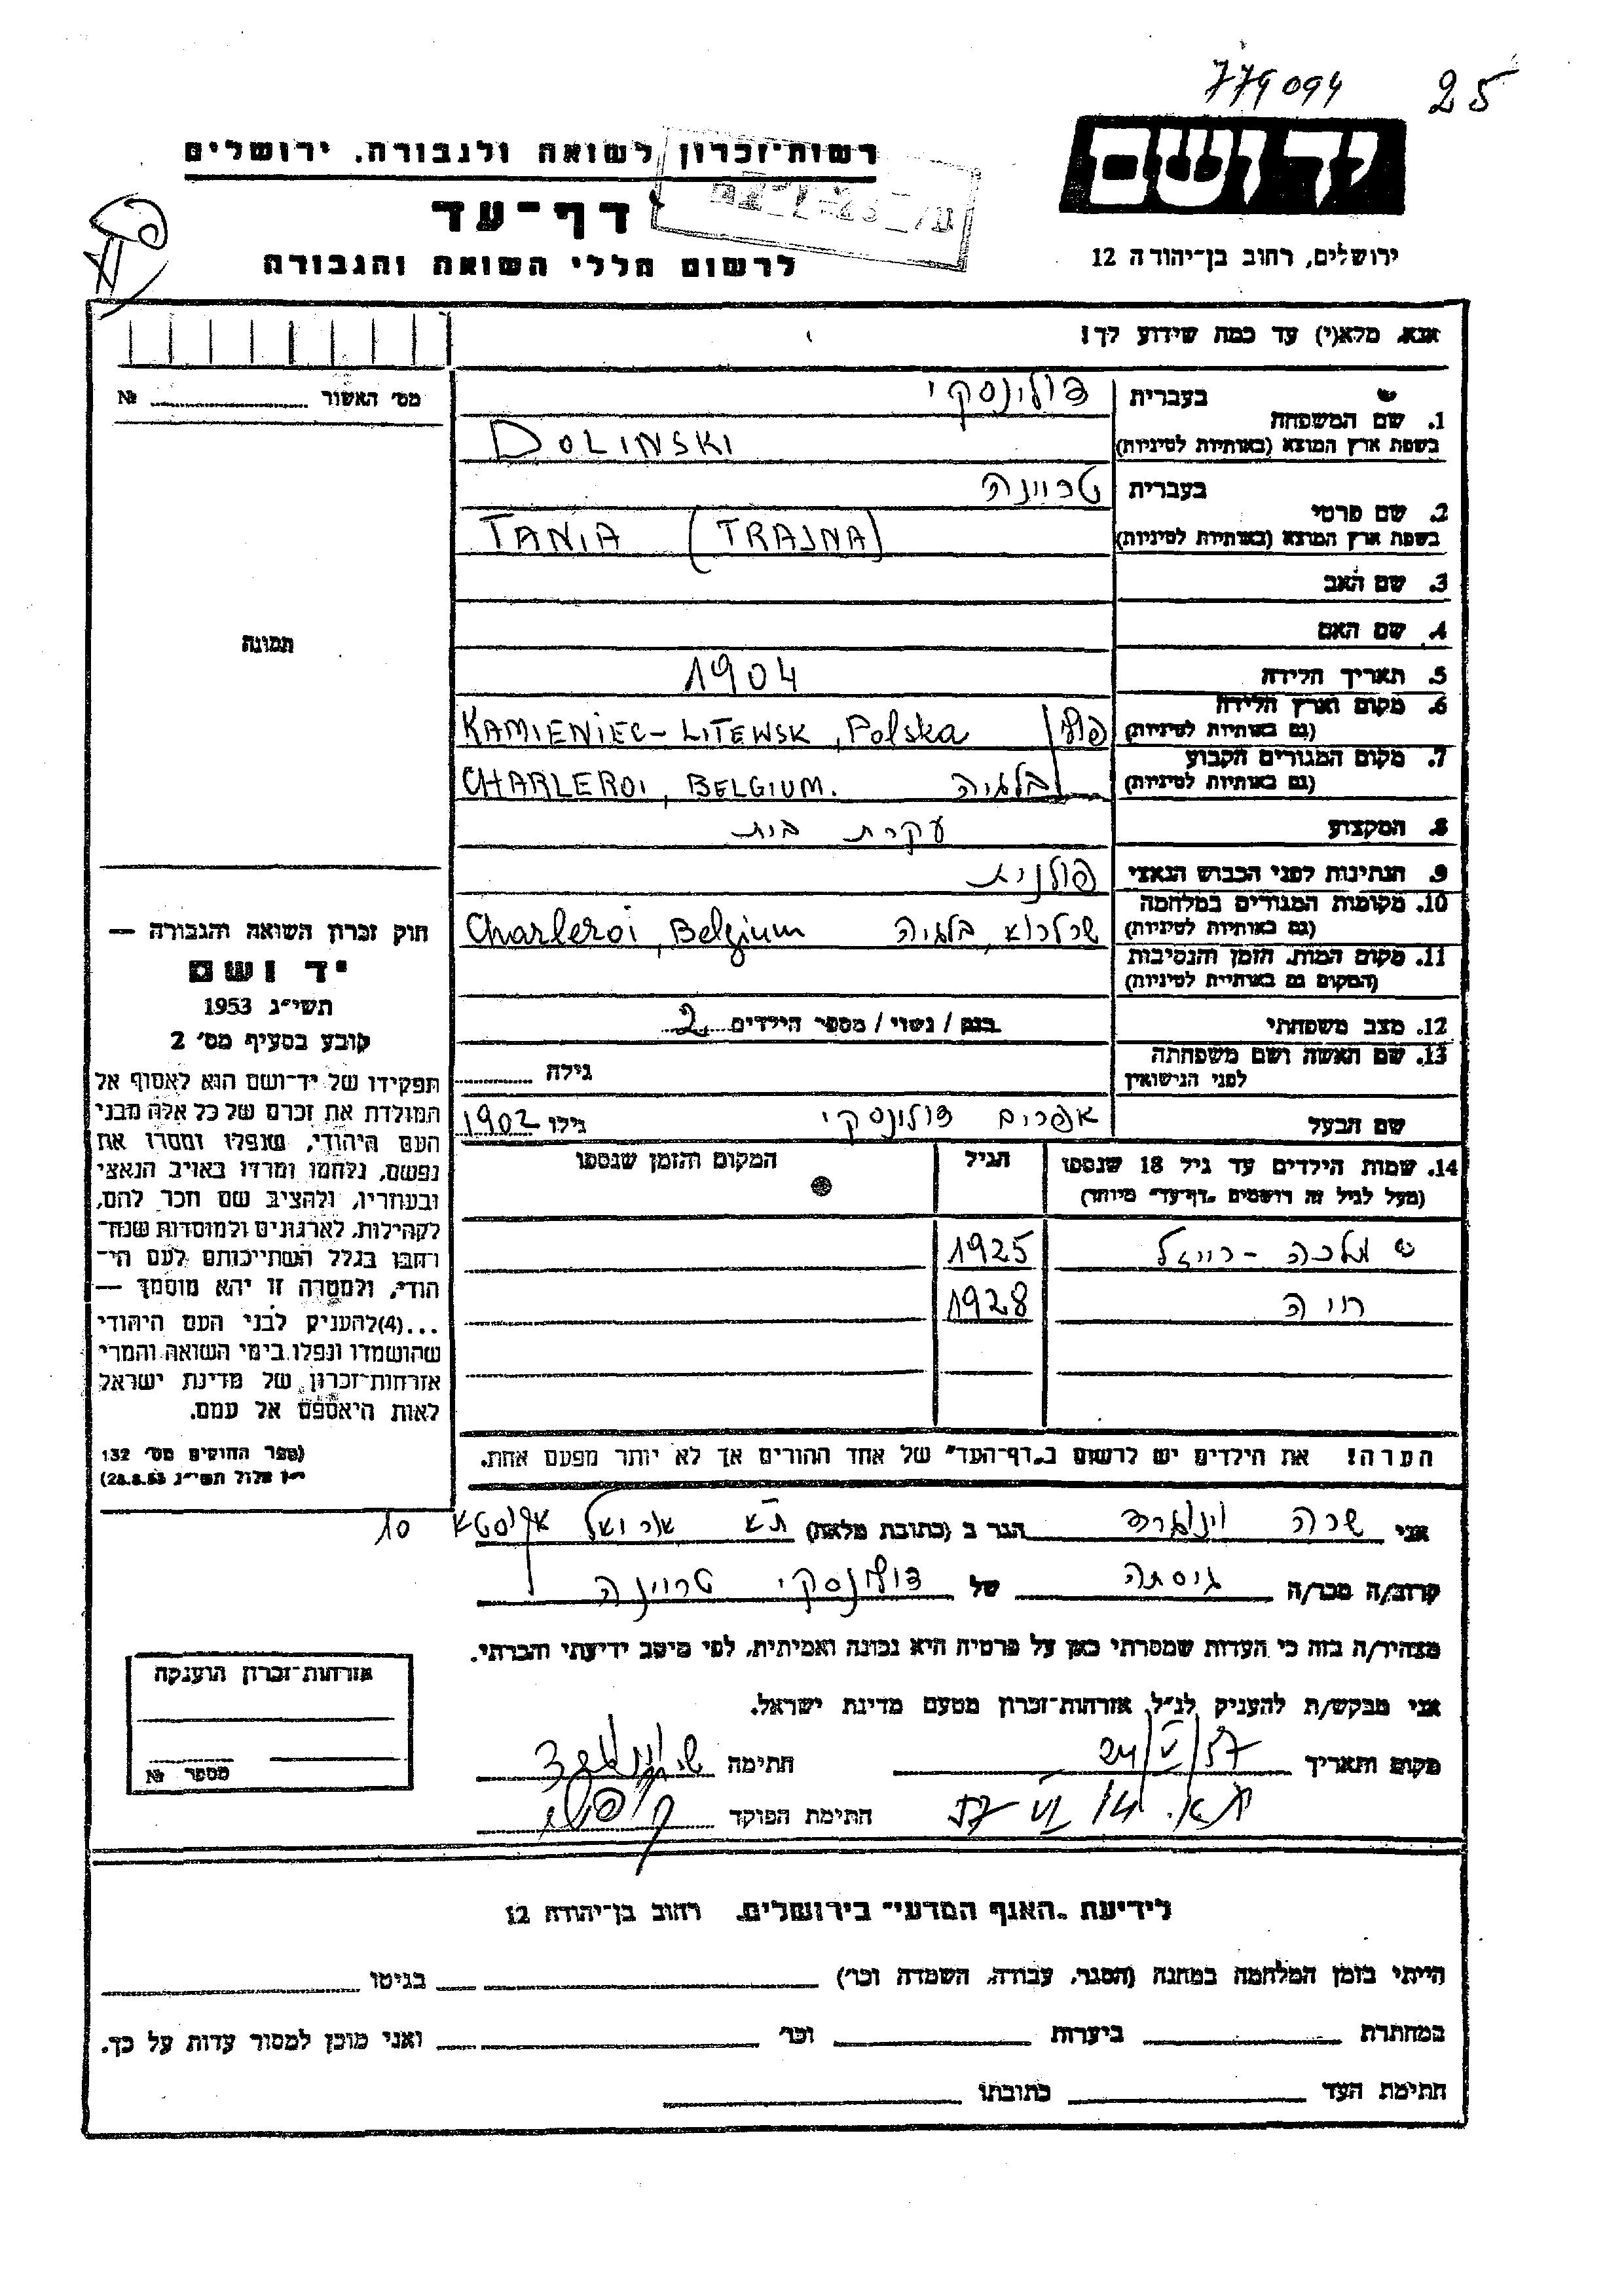 779094 25
יד ושם
ירושלים, רחוב בן־יהודה 12
רשות־זכרון לשואה ולגבורה, ירושלים
דף־עד
לרשום חללי השואה והגבורה
אנא, מלא(י) עד כמה שידוע לך!
מס׳ האשור № ........
1. שם המשפחה
בעברית דולינסקי
בשפת ארץ המוצא (באותיות לטיניות) DOLINSKI
2. שם פרטי
בעברית טריינה
בשפת ארץ המוצא (באותיות לטיניות) TANIA (TRAJNA)
3. שם האב
4. שם האם
5. תאריך הלידה 1904
6. מקום וארץ הלידה
(גם באותיות לטיניות) פולין KAMIENIEC-LITEWSK, Polska
7. מקום המגורים הקבוע
(גם באותיות לטיניות) בלגיה CHARLEROI, BELGIUM.
8. המקצוע עקרת בית
9. הנתינות לפני הכבוש הנאצי פולנית
10. מקומות המגורים במלחמה
(גם באותיות לטיניות) שרלרוא, בלגיה Charleroi, Belgium
11. מקום המות, הזמן והנסיבות
(המקום גם באותיות לטיניות)
12. מצב משפחתי רווק / נשוי / מספר הילדים 2
13. שם האשה ושם משפחתה
לפני הנישואין
גילה ........
שם הבעל אפרים דולינסקי גילו 1902
14. שמות הילדים עד גיל 18 שנספו
(מעל לגיל זה רושמים "דף־עד" מיוחד)
הגיל
המקום והזמן שנספו
מלכה - רייזל 1925
חיה 1928
הערה! את הילדים יש לרשום ב"דף־העד" של אחד ההורים אך לא יותר מפעם אחת.
תמונה
חוק זכרון השואה והגבורה —
יד ושם
תשי״ג 1953
קובע בסעיף מס׳ 2
תפקידו של יד־ושם הוא לאסוף אל
המולדת את זכרם של כל אלה מבני
העם היהודי, שנפלו ומסרו את
נפשם, נלחמו ומרדו באויב הנאצי
ובעוזריו, ולהציב שם וזכר להם,
לקהילות, לארגונים ולמוסדות שנח־
רבו בגלל השתייכותם לעם הי־
הודי, ולמטרה זו יהא מוסמך —
...(4) להעניק לבני העם היהודי
שהושמדו ונפלו בימי השואה והמרי
אזרחות־זכרון של מדינת ישראל
לאות היאספם אל עמם.
(ספר החוקים מס׳ 132
י״ז אלול תשי״ג 28.8.53)
אני שרה הגר ב (כתובת מלאה) ת״א 10
קרוב/ה מכר/ה גיסתה של דולינסקי טריינה
מצהיר/ה בזה כי העדות שמסרתי כאן על פרטיה היא נכונה ואמיתית, לפי מיטב ידיעתי והכרתי.
אני מבקש/ת להעניק לנ״ל אזרחות־זכרון מטעם מדינת ישראל.
מקום ותאריך 24/V/57 חתימה
ת״א. 14/VI 57 חתימת הפוקד
אזרחות־זכרון הוענקה
מספר №
לידיעת "האגף המדעי" בירושלים, רחוב בן־יהודה 12
הייתי בזמן המלחמה במחנה (הסגר, עבודה, השמדה וכו׳) בגיטו
במחתרת ביערות וכו׳ ואני מוכן למסור עדות על כך.
חתימת העד כתובתו